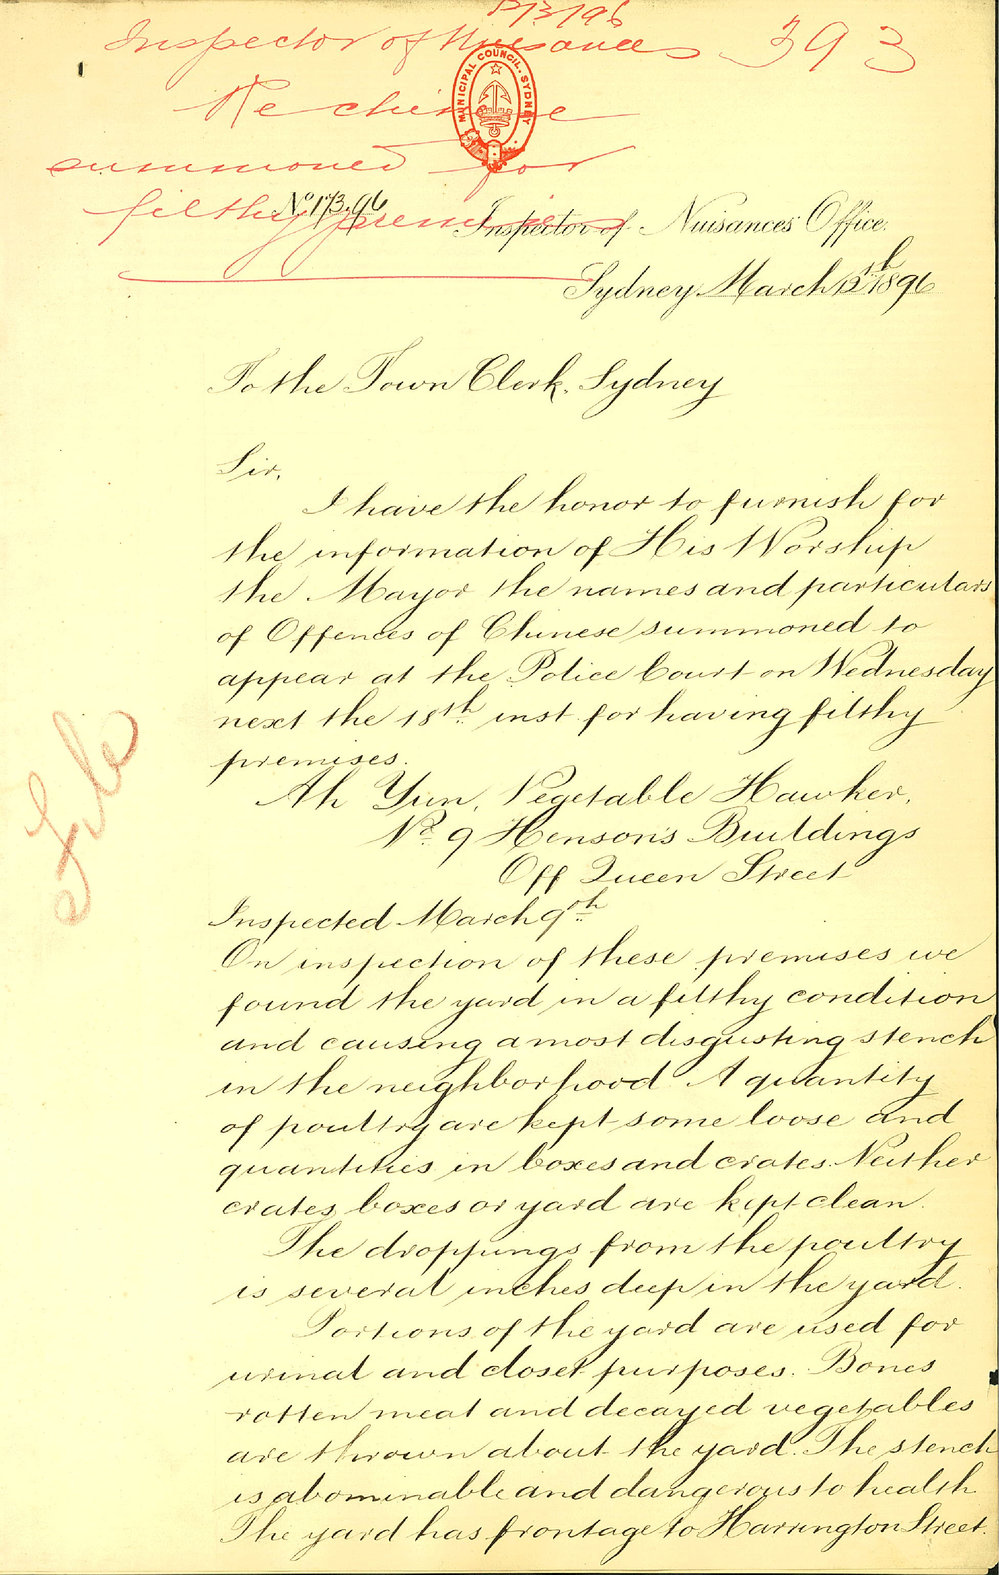 13/3/96
Inspector of Nuisances 393
Re chinese
summoned for
filthy premises
MUNICIPAL COUNCIL. SYDNEY
No 173.96
Inspector of Nuisances Office.
Sydney March 12th 1896
To the Town Clerk, Sydney
Sir,
I have the honor to furnish for
the information of His Worship
the Mayor the names and particulars
of Offences of Chinese summoned to
appear at the Police Court on Wednesday
next the 18th inst for having filthy
premises.
Ah Yun, Vegetable Hawker,
No 9 Henson's Buildings
Off Queen Street
File
Inspected March 9th
On inspection of these premises we
found the yard in a filthy condition
and causing a most disgusting stench
in the neighborhood A quantity
of poultry are kept some loose and
quantities in boxes and crates. Neither
crates, boxes or yard are kept clean.
The droppings from the poultry
is several inches deep in the yard.
Portions of the yard are used for
urinal and closet purposes. Bones
rotten meat and decayed vegetables
are thrown about the yard. The stench
is abominable and dangerous to health
The yard has frontage to Harrington Street.